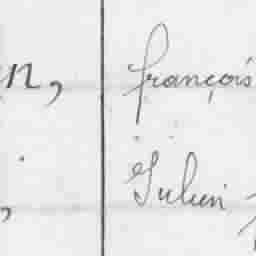 n, françois
, Julien